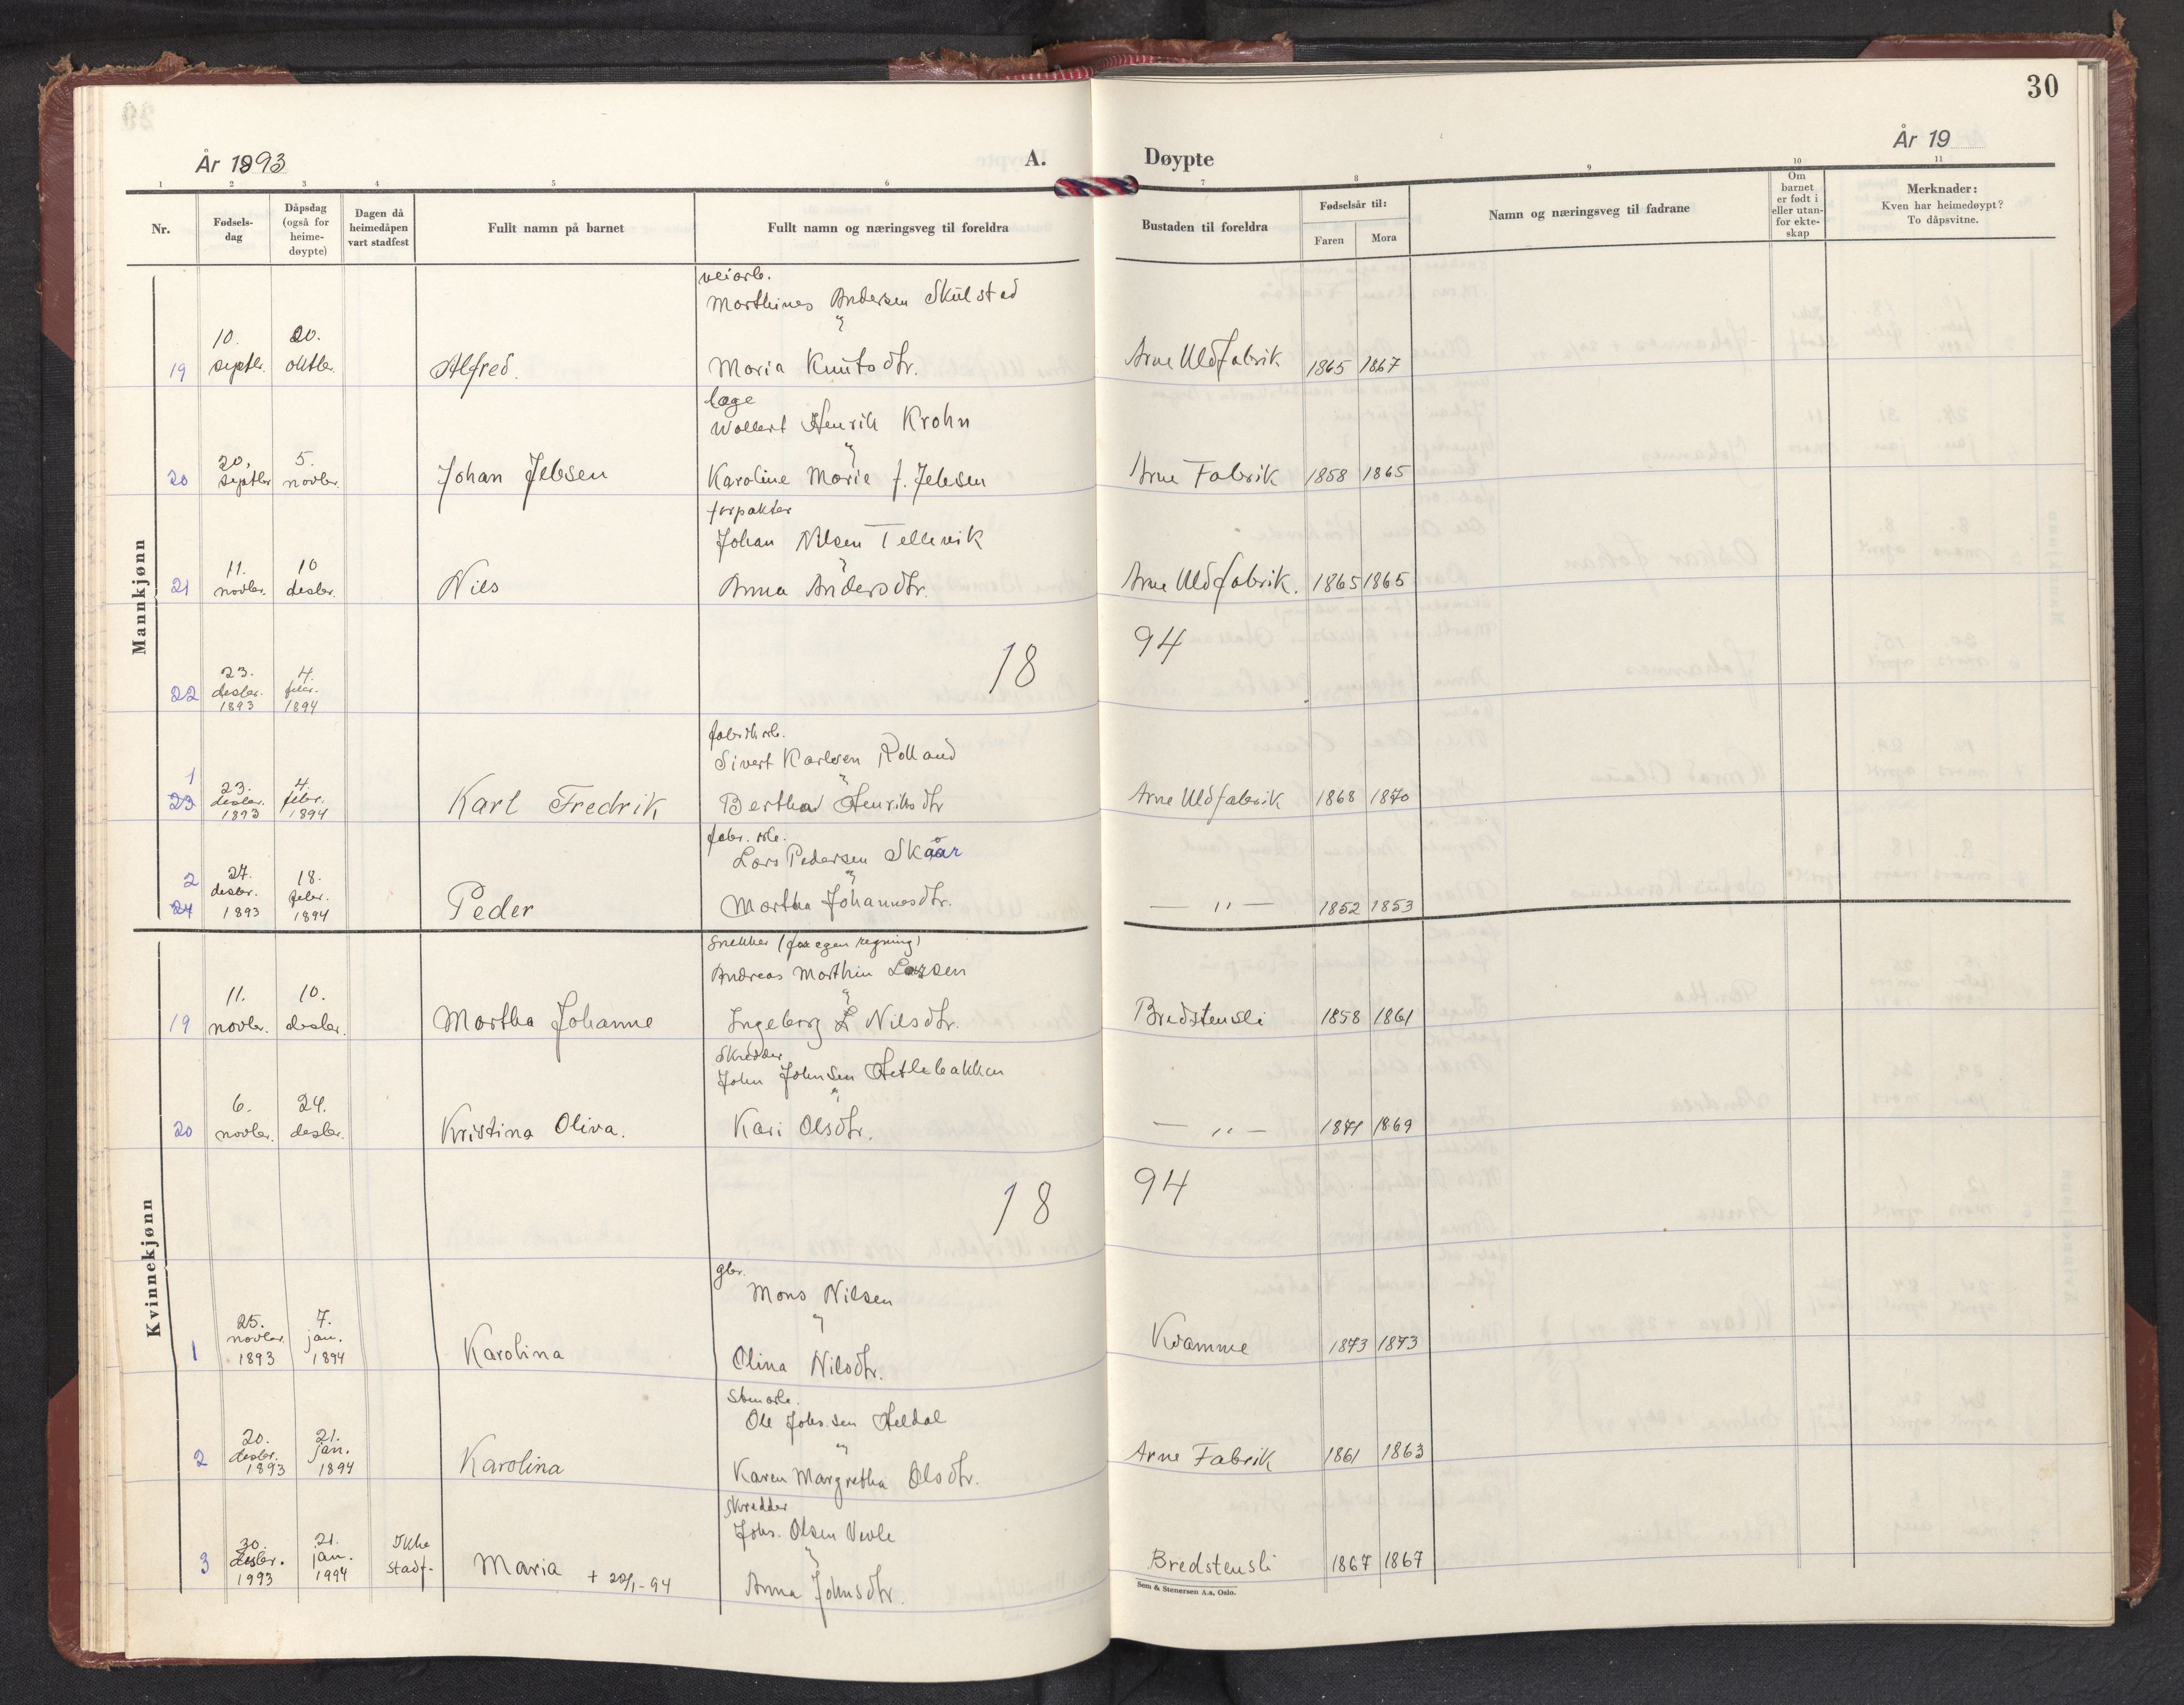 30
År 1893
A.
Døypte
År 19
1 2 3 4 5 6 7 8 9 10 11
Nr.
Fødsels-
dag
Dåpsdag
(også for
heime-
døypte)
Dagen då
heimedåpen
vart stadfest
Fullt namn på barnet
Fullt namn og næringsveg til foreldra
Bustaden til foreldra
Fødselsår til:
Faren Mora
Namn og næringsveg til fadrane
Om
barnet
er født i
eller utan-
for ekte-
skap
Merknader:
Kven har heimedøypt?
To dåpsvitne.
Mankjønn
veiarb.
Marthines Andersen Skulstad
"
19 10. septbr. 20. oktbr. Alfred. Maria Knutsdtr. Arne Uldfabrik 1865 1867
læge
Wollert Henrik Krohn
"
20 20. septbr 5. novbr. Johan Jebsen Karoline Marie f. Jebsen Arne Fabrik 1858 1865
forpakter
Johan Nilsen Tellevik
"
21 11. novbr. 10 desbr. Nils Anna Andersdtr. Arne Uldfabrik. 1865 1865
18 94
22 23. desbr. 1893 4. febr. 1894
fabrikarb.
Sivert Karlsen Rolland
"
1
23 23. desbr. 1893 4. febr. 1894 Karl Fredrik Bertha Henriksdtr Arne Uldfabrik 1868 1870
fabr. arb.
Lars Pedersen Skaar
"
2
24 27. desbr. 1893 18. febr. 1894 Peder Martha Johannesdtr. — " — 1852 1853
Kvinnekjønn
Snekker (for egen regning)
Andreas Marthin Larsen
"
19 11. novbr. 10. desbr. Martha Johanne Ingeborg L Nilsdtr. Bredstensli 1858 1861
Skrædder
John Johnsen Hetlebakken
"
20 6. novbr. 24. desbr. Kristina Oliva. Kari Olsdtr. — " — 1871 1869
18 94
gbr.
Mons Nilsen
"
1 25. novbr. 1893 7. jan. 1894 Karolina Olina Nilsdtr. Kvamme 1873 1873
Stenarb.
Ole Johs.sen Heldal
"
2 20. desbr. 1893 21. jan. 1894 Karolina Karen Margretha Olsdtr. Arne Fabrik 1861 1863
Skredder
Johs. Olsen Vevle
"
3 30. desbr. 1993 21. jan. 1994 Ikke stadf. Maria + 29/1-94 Anna Johnsdtr. Bredstensli 1867 1867
Sem & Stenersen A.s, Oslo.